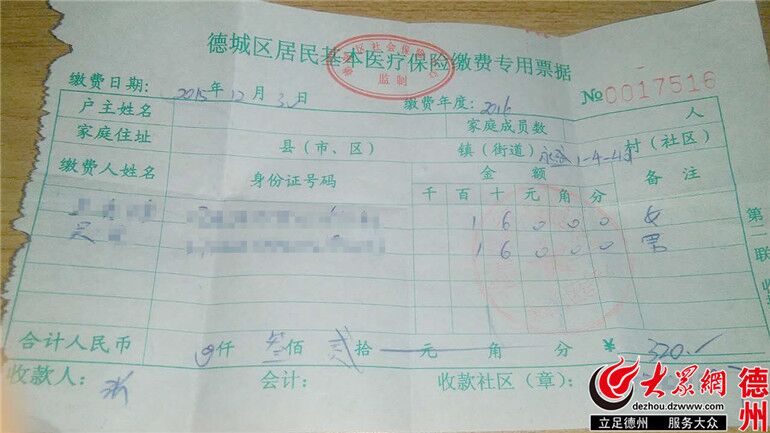 德城区居民基本医疗保险缴费专用票据
监制
缴费日期: 2015年12月3 日
缴费年度: 2016
№0017516
户主姓名
家庭成员数
人
家庭住址
县（市、区）
镇（街道） 1-4-
村（社区）
缴费人姓名
身份证号码
金额
备注
千 百 十 元 角 分
1 6 0 0 0 女
1 6 0 0 0 男
第二联
合计人民币
仟 叁佰 贰拾 元 角 分 ¥ 320.
收款人:
会计:
收款社区（章）:
大众網 德州
dezhou.dzwww.com
立足德州 服务大众